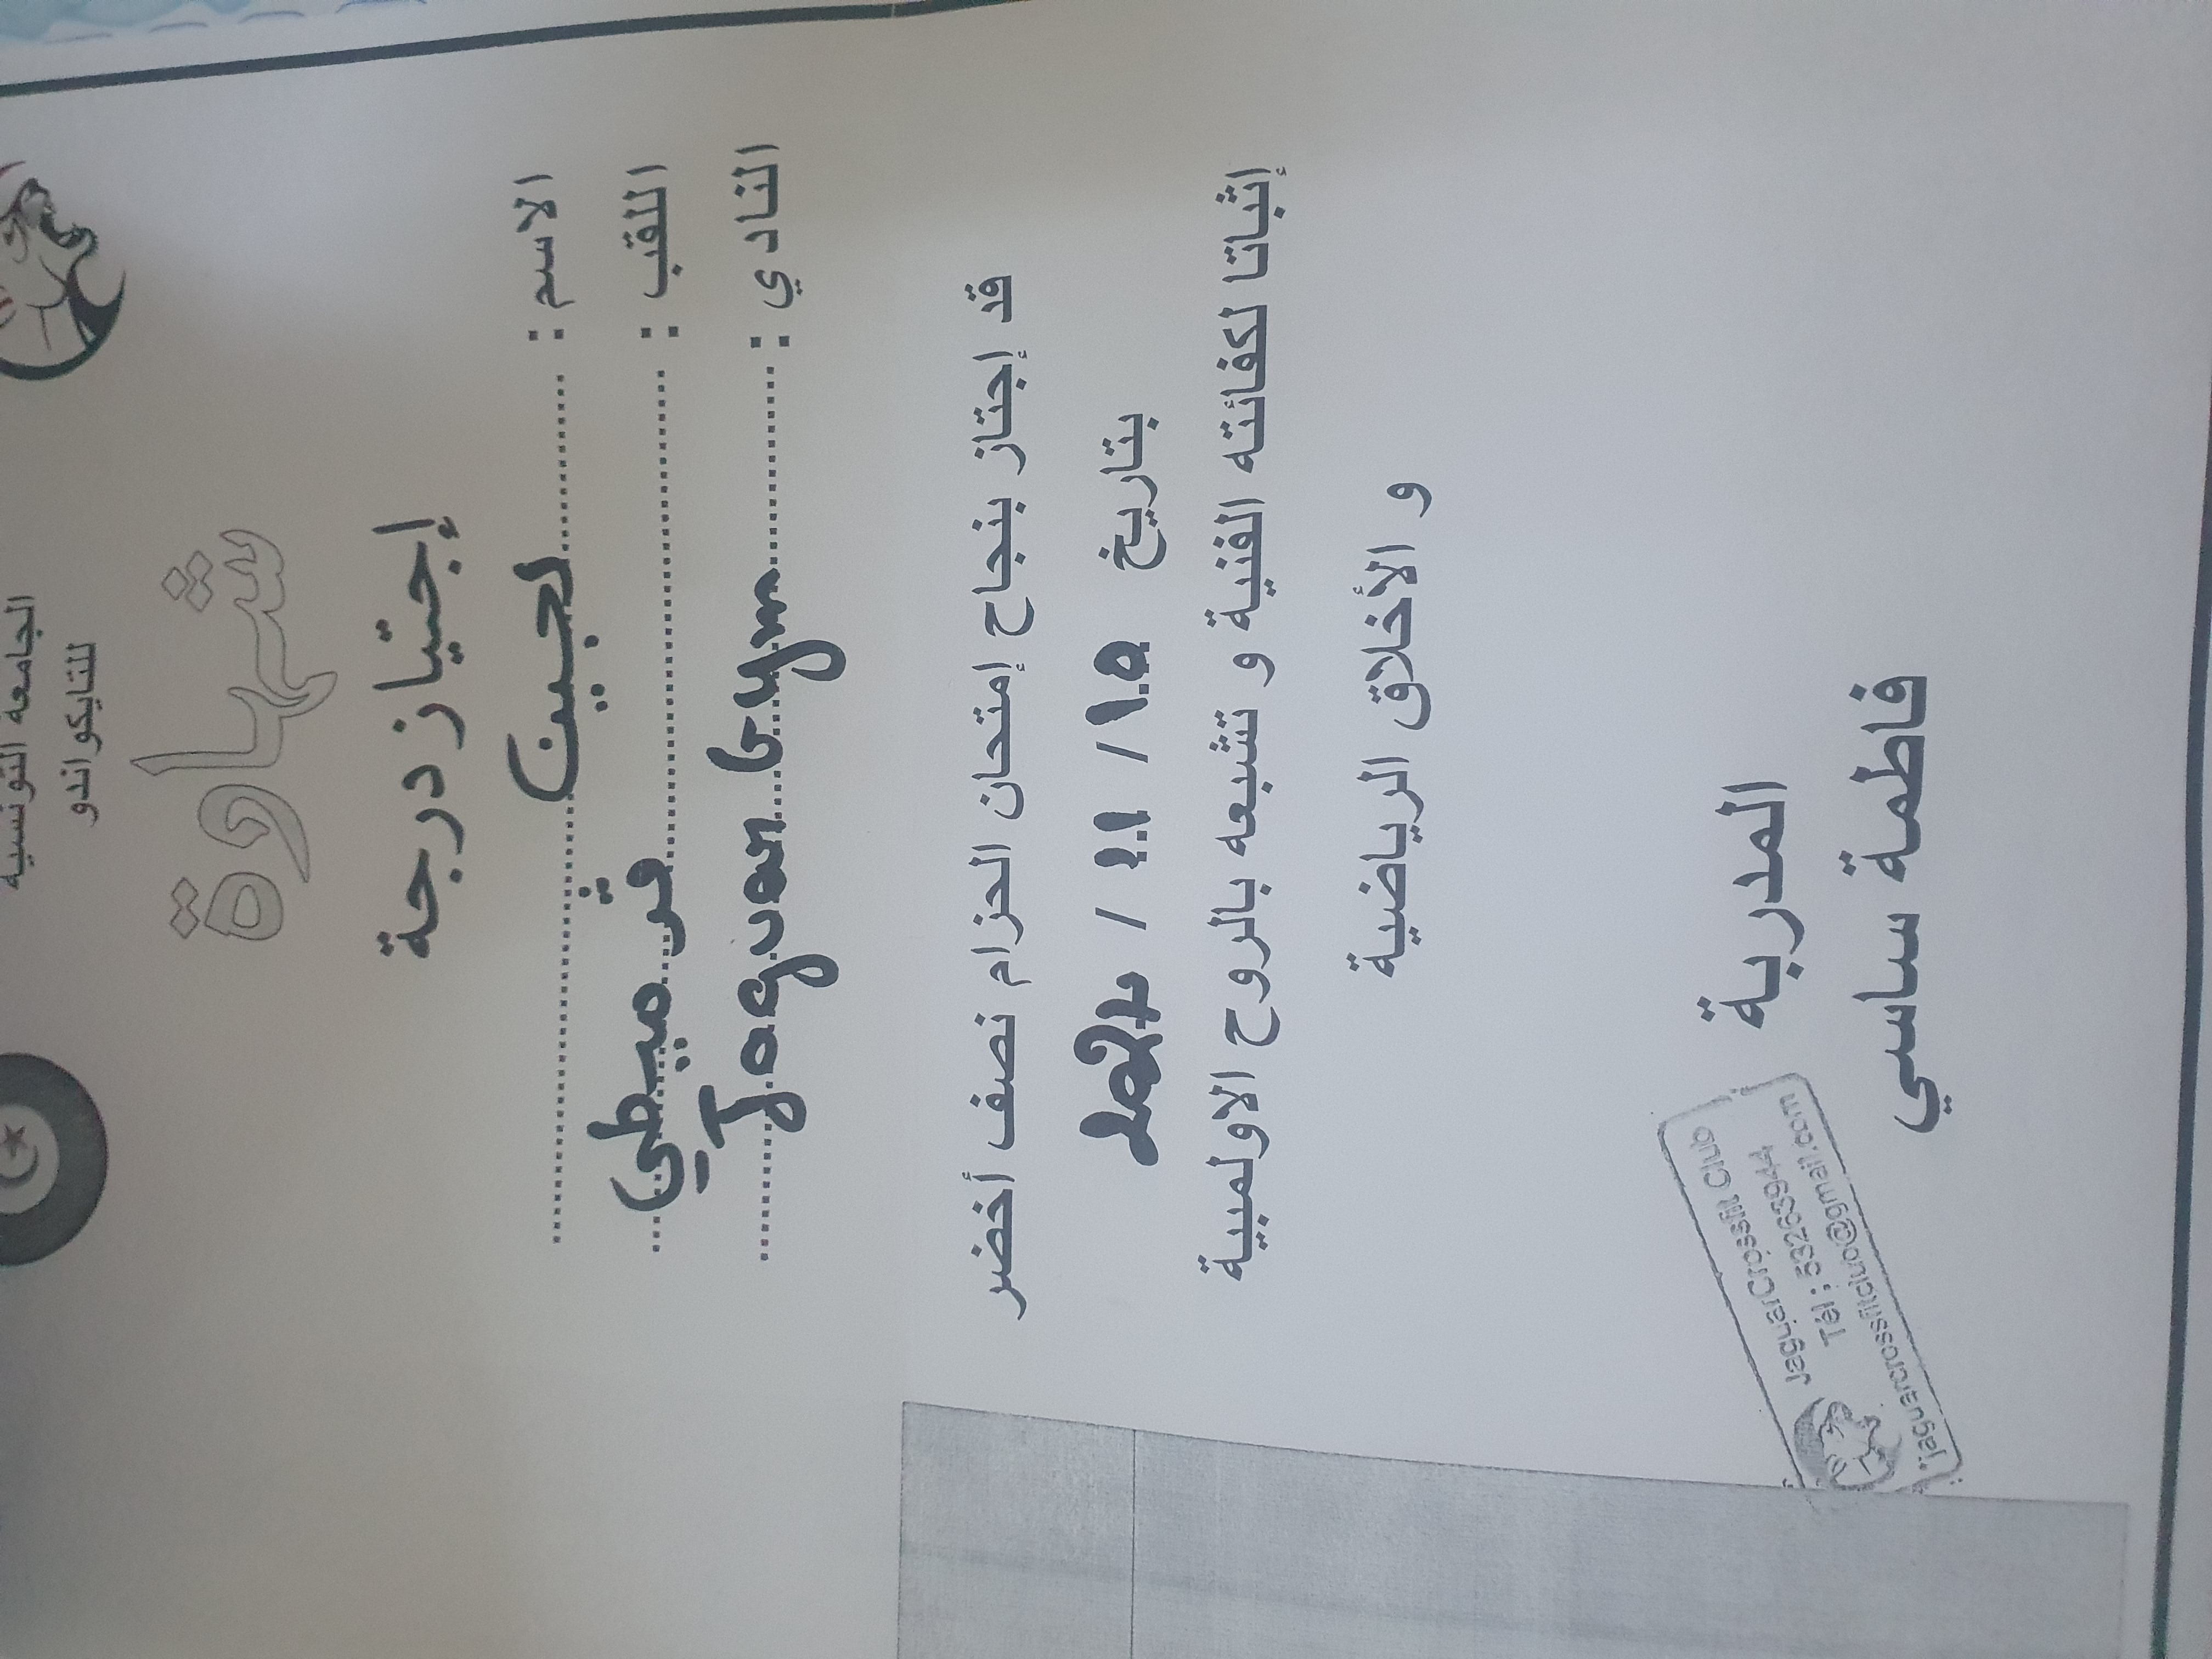 الجامعة التونسية
للتايكواندو
شهادة
إجتياز درجة
الاسم : لجين
اللقب :
النادي : Jaguar Gym
قد إجتاز بنجاح إمتحان الحزام نصف أخضر
بتاريخ 10 / 11 /
إثباتا لكفائته الفنية و تشبعه بالروح الاولمبية
و الأخلاق الرياضية
المدربة
فاطمة ساسي
JaguarCrossfit Club
Tél : 53263944
jaguarcrossfitclub@gmail.com